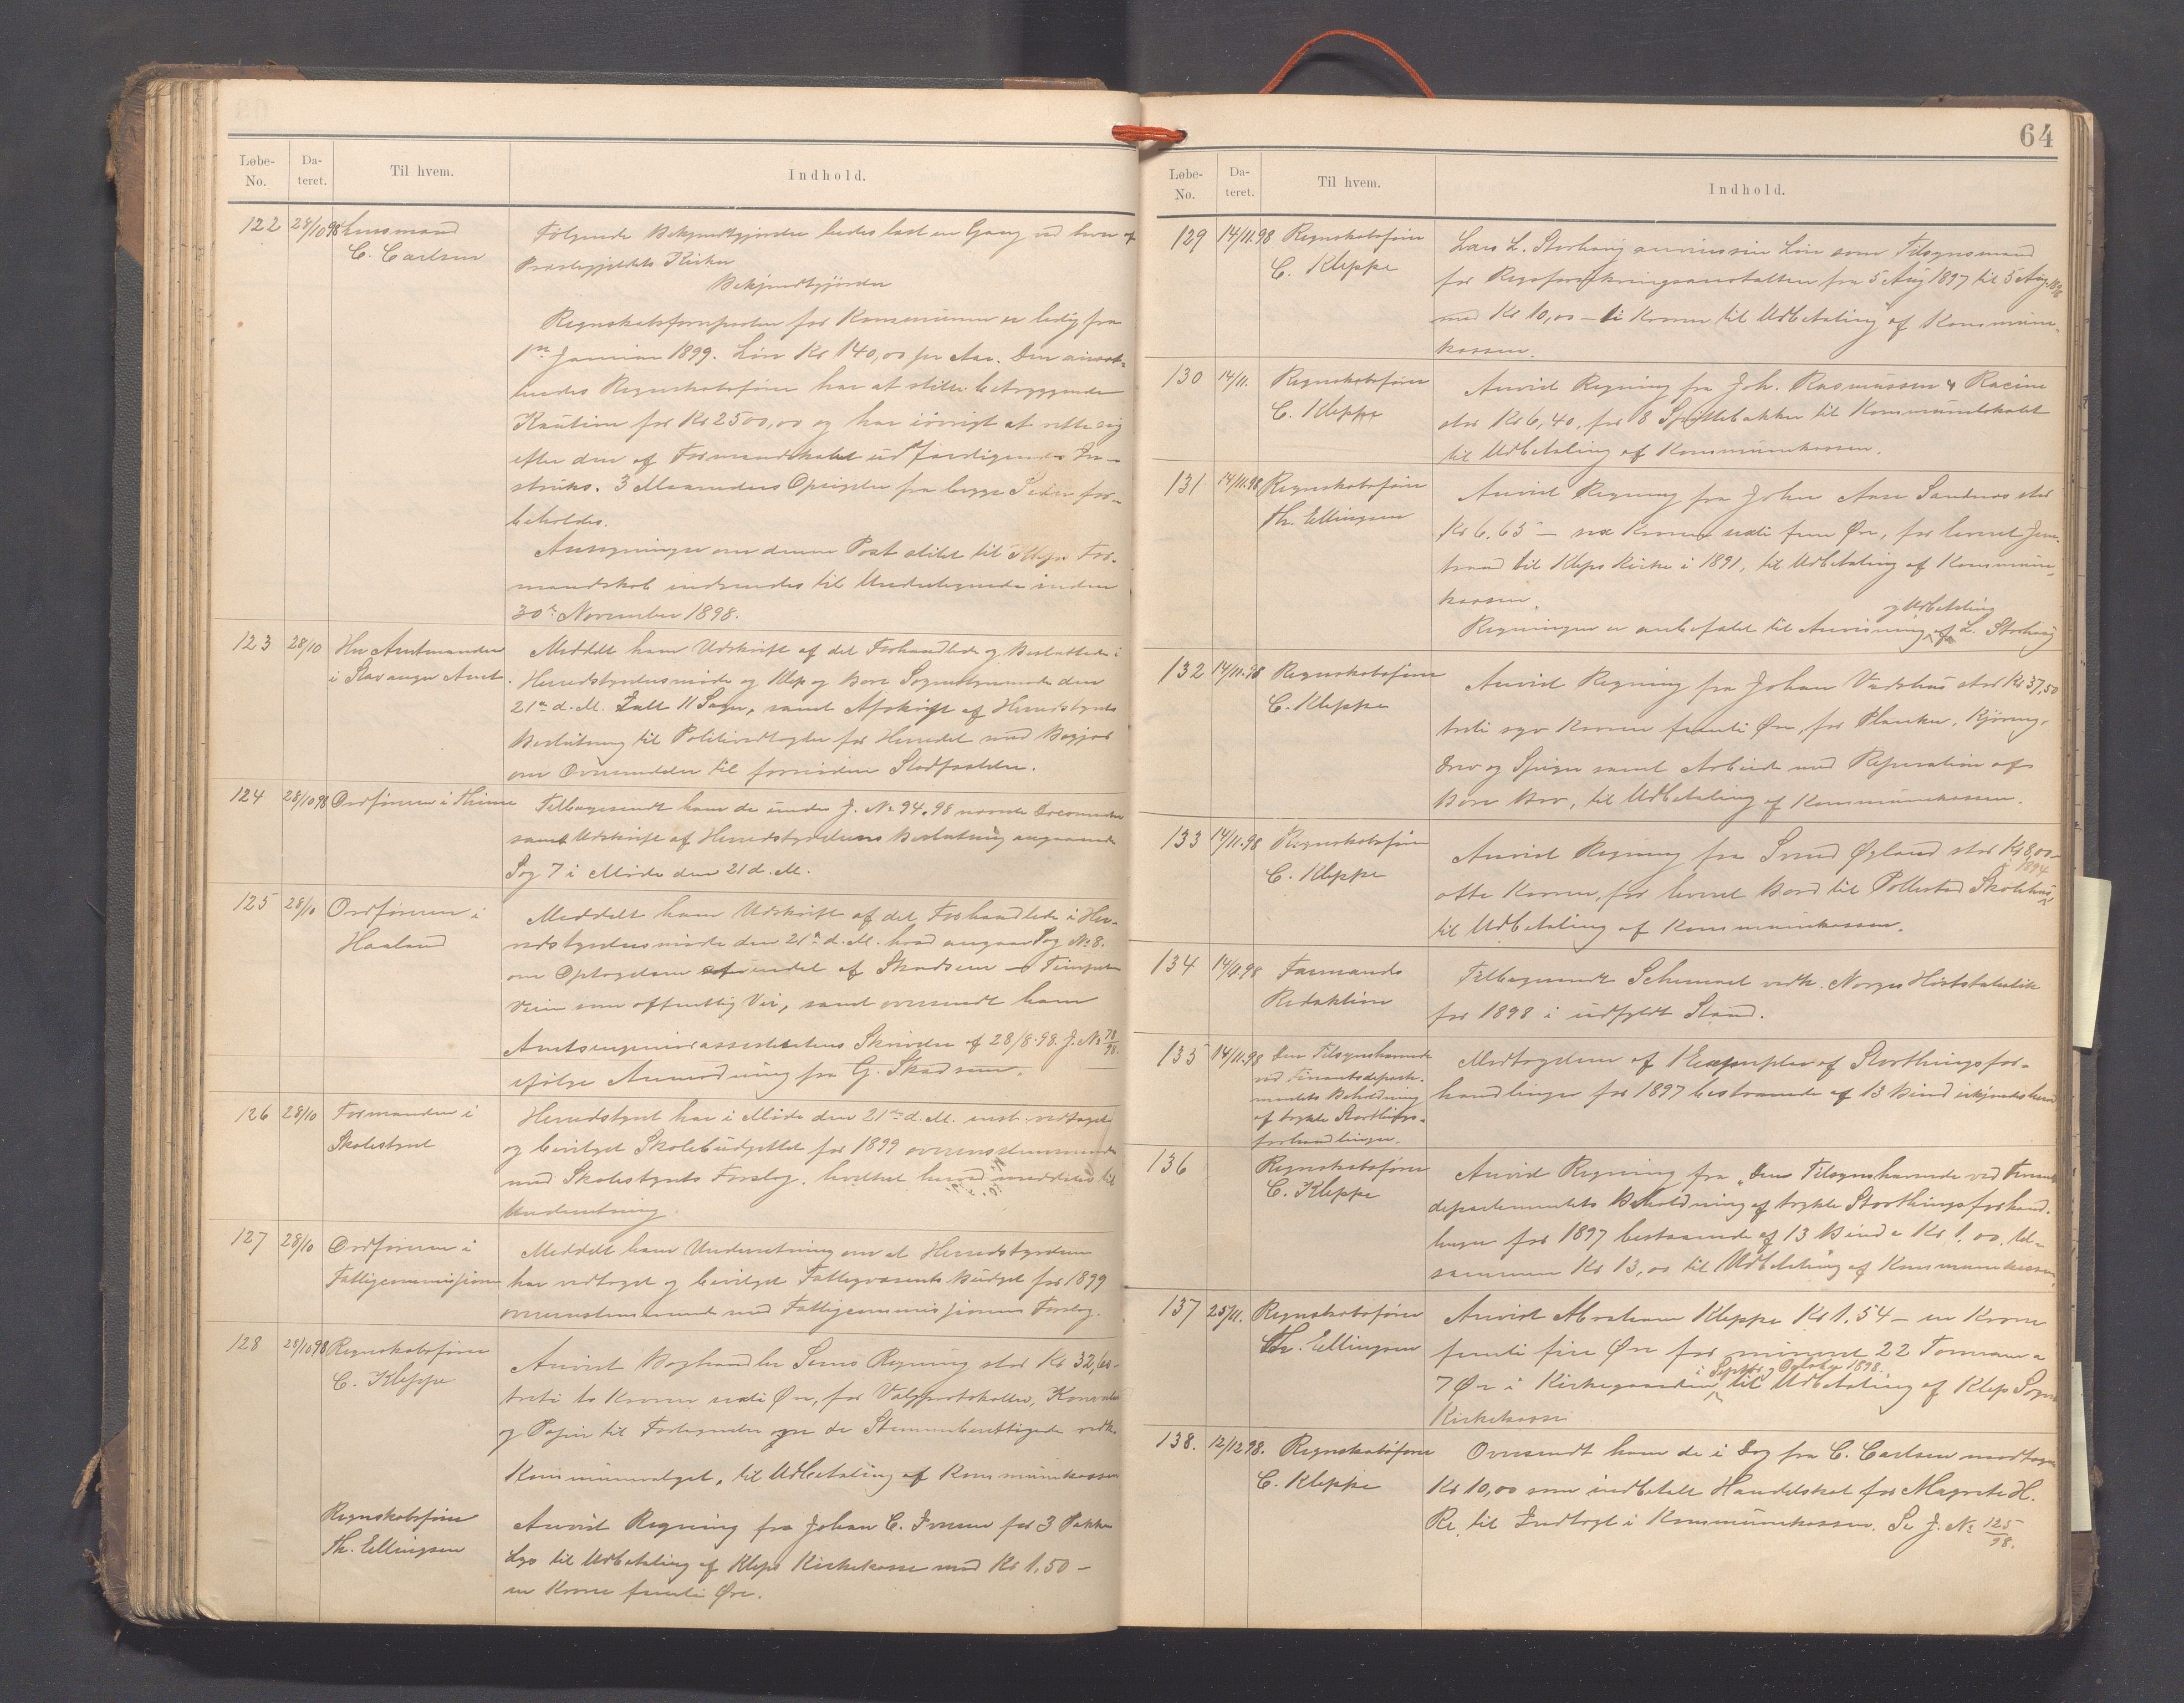 64
Løbe-No. Da-teret. Til hvem. Indhold.
122 28/10 98 Lensmand C. Carlsen
Følgende Bekjendtgjørelse bedes læst en Gang ved hver af
Præstegjeldets Kirker
Bekjendtgjørelse
Regnskabsførerposten for Kommunen er ledig fra
1ste Januar 1899. Løn Kr 140,00 pr Aar. Den ansæt-
tendes Regnskabsfører har at stille betryggende
Kaution for Kr 2500,00 og har iøvrigt at rette sig
efter den af Formandskabet udfærdigende In-
struks. 3 Maaneders Opsigelse fra begge Sider for-
beholdes.
Ansøgninger om denne Post stilet til Kleps For-
mandskab indsendes til Undertegnede inden
30te November 1898.
123 28/10 Hr Amtmanden i Stavanger Amt.
Meddelt ham Udskrift af det Forhandlede og Besluttede i
Herredstyrelsesmøde og Klep og Bore Sognestyremøde den
21de d. M. Ialt 11 Sager, samt Afskrift af Herredstyrets
Beslutning til Politivedtægter for Herredet med Begjær
om Oversendelse til fornøden Stadfæstelse.
124 28/10 98 Ordføreren i Thime
Tilbagesendt ham de under J. No 94.98 nævnte Documenter
samt Udskrift af Herredstyrelsens Beslutning angaaende
Sag 7 i Møde den 21 d. M.
125 28/10 Ordføreren i Haaland
Meddelt ham Udskrift af det Forhandlede i Her-
redstyrelsesmøde den 21de d. M. hvad angaar Sag No 8.
om Optagelsen af endel af Skadsem
Veien som offentlig Vei, samt oversendt ham
Amtsingeniørassistentens Skrivelse af 28/8.98. J. No 78/98.
ifølge Anmodning fra G. Skadsem.
126 28/10 Formanden i Skolestyret
Herredstyret har i Møde den 21de d. M. enst. vedtaget
og bevilget Skolebudgettet for 1899 overensstemmende
med Skolestyrets Forslag, hvilket herved meddeles til
Underretning.
127 28/10 Ordføreren i Fattigcommissionen
Meddelt ham Underretning om at Herredstyrelsen
har vedtaget og bevilget Fattigvæsenets Budget for 1899
overensstemmende med Fattigcommissionens Forslag.
128 28/10 98 Regnskabsfører C. Kleppe
Anvist Boghandler Sems Regning stor Kr 32,60 –
treti to Kroner sexti Øre, for Valgprotokoller, Konvolut
og Papir til Fortegnelse over de Stemmeberettigede vedk.
Kommunevalget, til Udbetaling af Kommunekassen
Regnskabsfører Th. Ellingsen
Anvist Regning fra Johan C. Iversen for 3 Pakker
Lys til Udbetaling af Kleps Kirkekasse med Kr 1.50 –
en Krone femti Øre.
Løbe-No. Da-teret. Til hvem. Indhold.
129 14/11.98 Regnskabsfører C. Kleppe
Lars L. Storhaug anvises sin Løn som Tilsynsmand
for Rigsforsikringsanstalten fra 5 Aug 1897 til 5 Aug 1898
med Kr 10,00 – ti Kroner til Udbetaling af Kommune-
kassen.
130 14/11. Regnskabsfører C. Kleppe
Anvist Regning fra Joh. Rasmussen & Racine
stor Kr 6,40, for 8 Spyttebakker til Kommunelokalet
til Udbetaling af Kommunekassen.
131 14/11.98 Regnskabsfører Th. Ellingsen
Anvist Regning fra John Aase Sandnes stor
Kr 6.65 – sex Kroner sexti fem Øre, for leveret Jern-
traad til Kleps Kirke i 1891, til Udbetaling af Kommune-
kassen.
Regningen er anbefalet til Anvisning og Udbetaling af L. Storhaug
132 14/11.98 Regnskabsfører C. Kleppe
Anvist Regning fra Johan Vadshus stor Kr 37,50
treti syv Kroner femti Øre, for Planker, Kjøring,
Drev og Spiger samt Arbeide med Reparation af
Bore Bro, til Udbetaling af Kommunekassen.
133 14/11.98 Regnskabsfører C. Kleppe
Anvist Regning fra Svend Øgland stor Kr 8,00 –
otte Kroner, for leveret Bord til Pollestad Skolehus i 1894
til Udbetaling af Kommunekassen.
134 14/11.98 Farmands Redaktion
Tilbagesendt Schemaet vedk. Norges Høststatistik
for 1898 i udfyldt Stand.
135 14/11.98 Den Tilsynshavende
ved Finantsdeparte-
mentets Beholdning
af trykte Storthings-
forhandlinger.
Modtagelsen af 1 Exemplar af Storthingsfor-
handlinger for 1897 bestaaende af 13 Bind
136 Regnskabsfører C. Kleppe
Anvist Regning fra „Den Tilsynshavende ved Finants
departementets Beholdning af trykte Storthingsforhand-
linger for 1897 bestaaende af 13 Bind a Kr 1.00, til-
sammen Kr 13,00 til Udbetaling af Kommunekassen.
137 25/11. Regnskabsfører Th. Ellingsen
Anvist Abraham Kleppe Kr 1.54 – en Krone
femti fire Øre for 22 a
7 Øre i Kirkegaarden i Septbr og Oktober 1898. til Udbetaling af Klep Sogns
Kirkekasse
138. 12/12 98. Regnskabsfører C. Kleppe
Oversendt ham de i Dag fra C. Carlsen modtagne
Kr 10,00 som indbetalt Handelskat for Magrete H.
Re, til Indtægt i Kommunekassen. Se J. No 125/98.